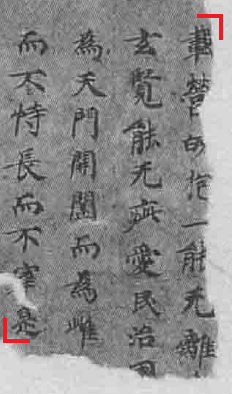 載營魄抱一能无離
玄覽能无疵愛民治
為天門開闔而為雌
而不恃長而不宰是